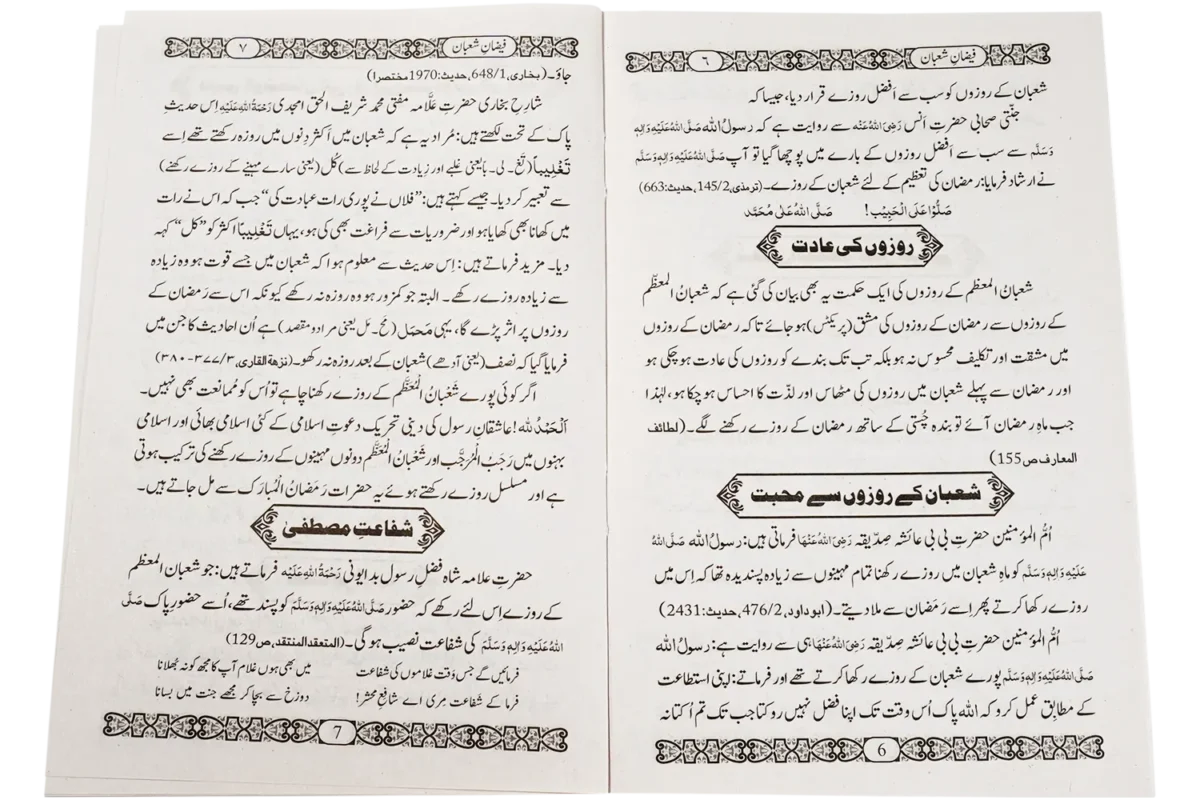 فیضانِ شعبان
٦
شعبان کے روزوں کو سب سے اَفضل روزے قرار دیا، جیسا کہ
جنّتی صحابی حضرتِ اَنس رَضِیَ اللہُ عَنْہ سے روایت ہے کہ رسولُ اللہ صَلَّی اللہُ عَلَیْہِ وَاٰلِہٖ
وَسَلَّم سے سب سے اَفضل روزوں کے بارے میں پوچھا گیا تو آپ صَلَّی اللہُ عَلَیْہِ وَاٰلِہٖ وَسَلَّم
نے ارشاد فرمایا: رمضان کی تعظیم کے لئے شعبان کے روزے۔ (ترمذی، 145/2، حدیث:663)
صَلُّوْا عَلَی الْحَبِیْب! صَلَّی اللہُ عَلٰی مُحَمَّد
روزوں کی عادت
شعبانُ المعظم کے روزوں کی ایک حکمت یہ بھی بیان کی گئی ہے کہ شعبانُ المعظّم
کے روزوں سے رمضان کے روزوں کی مشق (پریکٹس) ہو جائے تاکہ رمضان کے روزوں
میں مشقت اور تکلیف محسوس نہ ہو بلکہ تب تک بندے کو روزوں کی عادت ہو چکی ہو
اور رمضان سے پہلے شعبان میں روزوں کی مٹھاس اور لذّت کا احساس ہو چکا ہو، لہٰذا
جب ماہِ رمضان آئے تو بندہ چُستی کے ساتھ رمضان کے روزے رکھنے لگے۔ (لطائف
المعارف ص155)
شعبان کے روزوں سے محبت
اُمُّ المؤمنین حضرتِ بی بی عائشہ صِدّیقہ رَضِیَ اللہُ عَنْہَا فرماتی ہیں: رسولُ اللہ صَلَّی اللہُ
عَلَیْہِ وَاٰلِہٖ وَسَلَّم کو ماہِ شعبان میں روزے رکھنا تمام مہینوں سے زیادہ پسندیدہ تھا کہ اِس میں
روزے رکھا کرتے پھر اِسے رَمَضان سے ملا دیتے۔ (ابوداود، 476/2، حدیث:2431)
اُمُّ المؤمنین حضرتِ بی بی عائشہ صِدّیقہ رَضِیَ اللہُ عَنْہَا ہی سے روایت ہے: رسولُ اللہ
صَلَّی اللہُ عَلَیْہِ وَاٰلِہٖ وَسَلَّم پورے شعبان کے روزے رکھا کرتے تھے اور فرماتے: اپنی استطاعت
کے مطابق عمل کرو کہ اللہ پاک اُس وقت تک اپنا فضل نہیں روکتا جب تک تم اُکتا نہ
6
فیضانِ شعبان
۷
جاؤ۔ (بخاری، 648/1، حدیث:1970 مختصرا)
شارحِ بخاری حضرتِ علّامہ مفتی محمد شریف الحق امجدی رَحْمَۃُ اللہِ عَلَیْہ اِس حدیثِ
پاک کے تحت لکھتے ہیں: مُراد یہ ہے کہ شعبان میں اَکثر دِنوں میں روزہ رکھتے تھے اِسے
تَغْلِیباً (تَغ۔لی۔باً یعنی غلبے اور زیادت کے لحاظ سے) کُل (یعنی سارے مہینے کے روزے رکھنے)
سے تعبیر کر دیا۔ جیسے کہتے ہیں: ”فلاں نے پوری رات عبادت کی“ جب کہ اس نے رات
میں کھانا بھی کھایا ہو اور ضروریات سے فراغت بھی کی ہو، یہاں تَغْلِیباً اکثر کو ”کل“ کہہ
دیا۔ مزید فرماتے ہیں: اِس حدیث سے معلوم ہوا کہ شعبان میں جسے قوت ہو وہ زیادہ
سے زیادہ روزے رکھے۔ البتہ جو کمزور ہو وہ روزہ نہ رکھے کیونکہ اس سے رَمَضان کے
روزوں پر اثر پڑے گا، یہی مَحمَل (مَح۔مَل یعنی مراد و مقصد) ہے اُن احادیث کا جن میں
فرمایا گیا کہ نصف (یعنی آدھے) شعبان کے بعد روزہ نہ رکھو۔ (نزھۃ القاری، ۳/۳۷۷-۳۸۰)
اگر کوئی پورے شَعْبانُ الْمُعَظَّم کے روزے رکھنا چاہے تو اُس کو مُمانعت بھی نہیں۔
اَلْحَمْدُ لِلّٰہ! عاشقانِ رسول کی دینی تحریک دعوتِ اسلامی کے کئی اسلامی بھائی اور اسلامی
بہنوں میں رَجَبُ الْمُرَجَّب اور شَعْبانُ الْمُعَظَّم دونوں مہینوں کے روزے رکھنے کی ترکیب ہوتی
ہے اور مسلسل روزے رکھتے ہوئے یہ حضرات رَمَضانُ الْمُبارَک سے مل جاتے ہیں۔
شفاعتِ مصطفیٰ
حضرتِ علامہ شاہ فضلِ رسول بدایونی رَحْمَۃُ اللہِ عَلَیْہ فرماتے ہیں: جو شعبان المعظم
کے روزے اِس لئے رکھے کہ حضور صَلَّی اللہُ عَلَیْہِ وَاٰلِہٖ وَسَلَّم کو پسند تھے، اُسے حضورِ پاک صَلَّی
اللہُ عَلَیْہِ وَاٰلِہٖ وَسَلَّم کی شفاعت نصیب ہو گی۔ (المتعقد المنتقد، ص129)
فرمائیں گے جس وَقت غلاموں کی شفاعت میں بھی ہوں غلام آپ کا مجھ کو نہ بُھلانا
فرما کے شَفاعت مِری اے شافعِ محشر! دوزخ سے بچا کر مجھے جنت میں بسانا
7